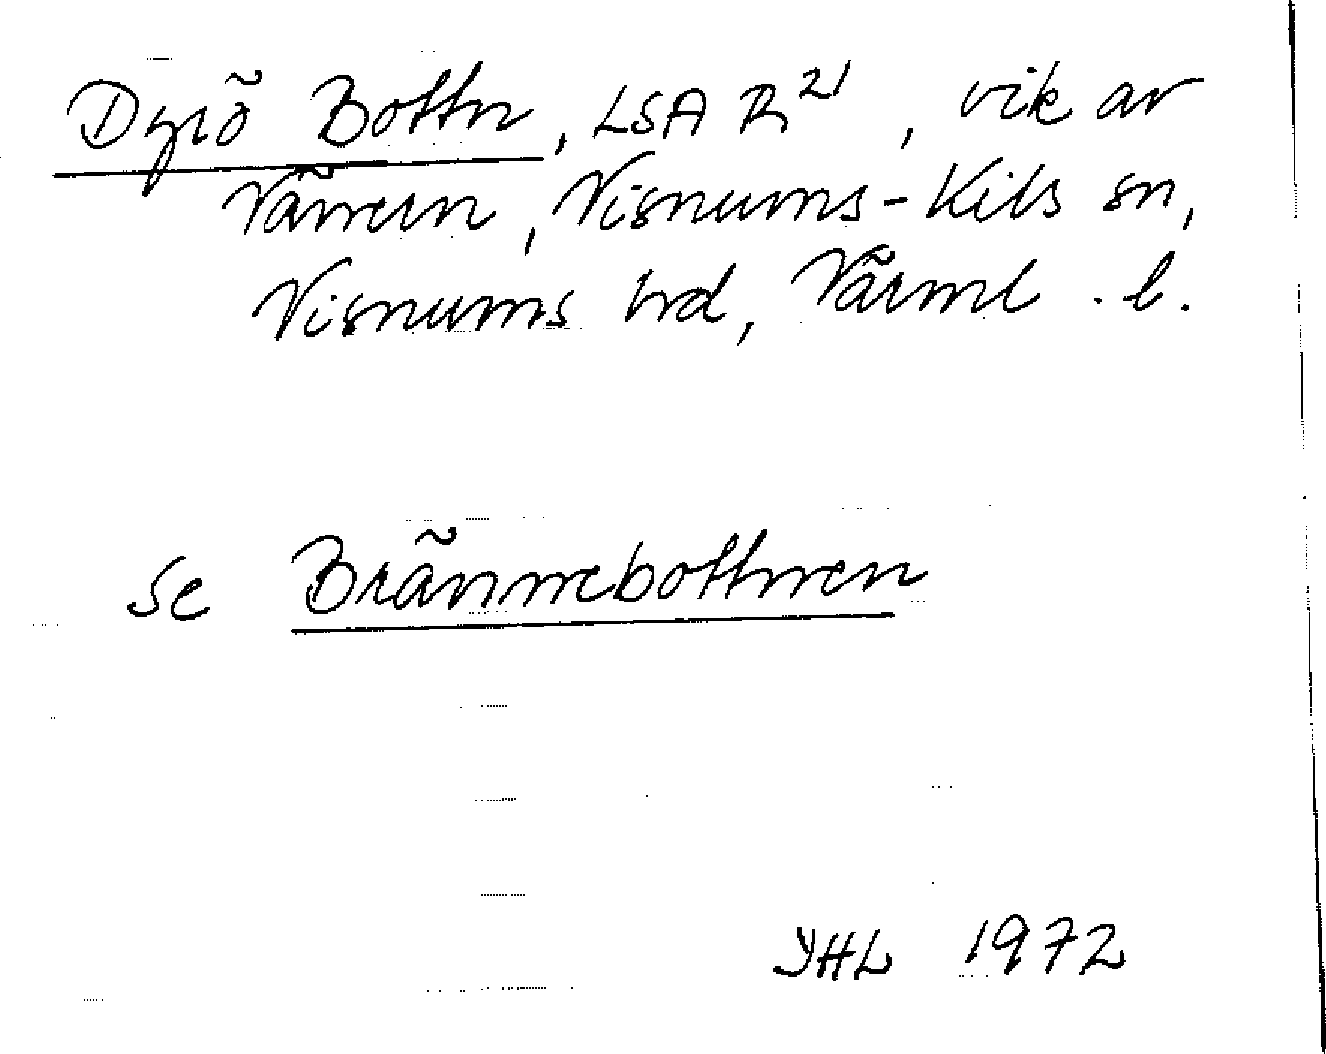 Dyrö Bottn, LSA R21, vik av
Vänern, Visnums-Kils sn,
Visnums hrd, Värml. l.
se Brännebottnen
YHL 1972